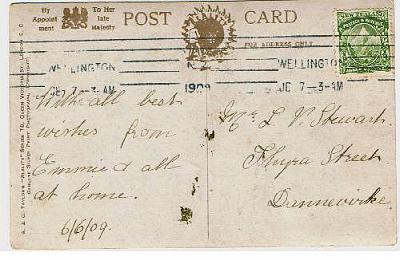 By Appointment
To Her late Majesty
POST CARD
FOR ADDRESS ONLY
NEW ZEALAND
WELLINGTON
7 3-AM
1909
WELLINGTON
7—3-AM
With all best
wishes from
Emmie & all
at home.
6/6/09.
Mr L V Stewart
Thyra Street
Dannevirke